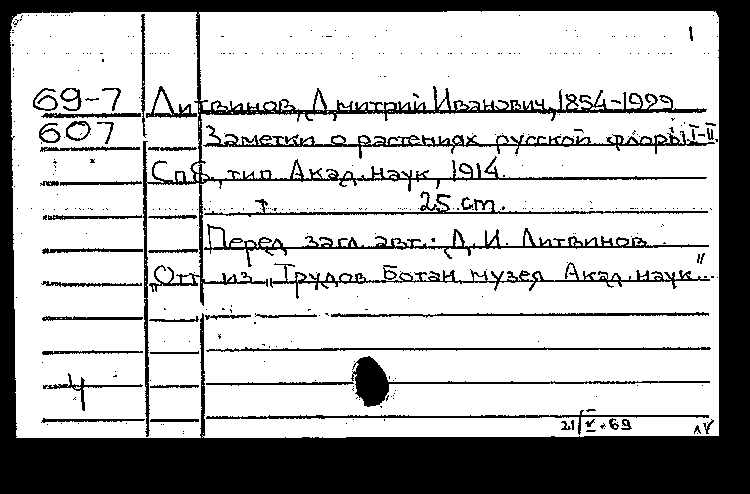 1
69-7 Литвинов, Дмитрий Иванович, 1854-1929
607 Заметки о растениях русской флоры. I-II.
Спб, тип Акад. наук, 1914.
т. 25 cm.
Перед загл. авт.: Д. И. Литвинов
"Отт. из „Трудов Ботан. музея Акад. наук"
4
21/V-69